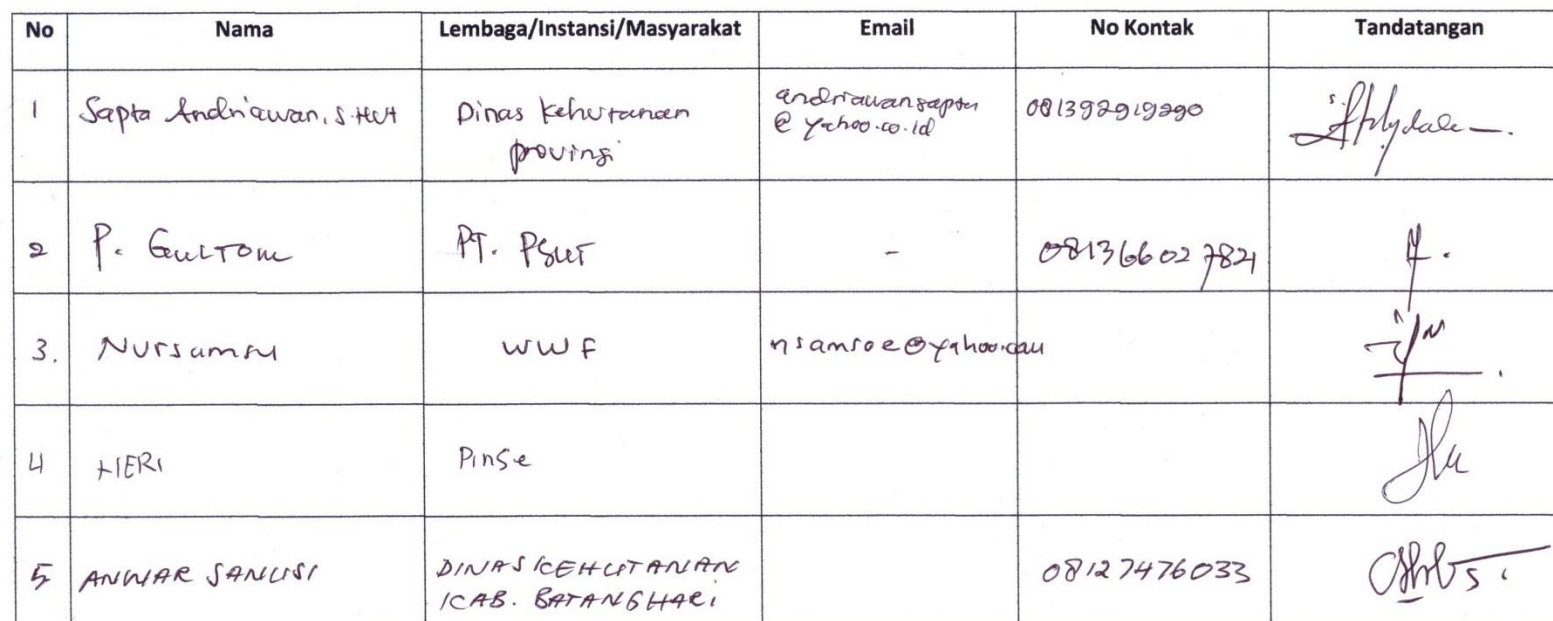 No Nama Lembaga/Instansi/Masyarakat Email No Kontak Tandatangan
1 Sapta Andriawan, S.Hut Dinas Kehutanan provinsi andriawansapta @yahoo.co.id 081392919290
2 P. GULTOM PT. PSUT - 081366027821
3. Nursamsu WWF nsamsoe@yahoo.com
4 HERI Pinse
5 ANWAR SANUSI DINAS KEHUTANAN KAB. BATANGHARI 08127476033